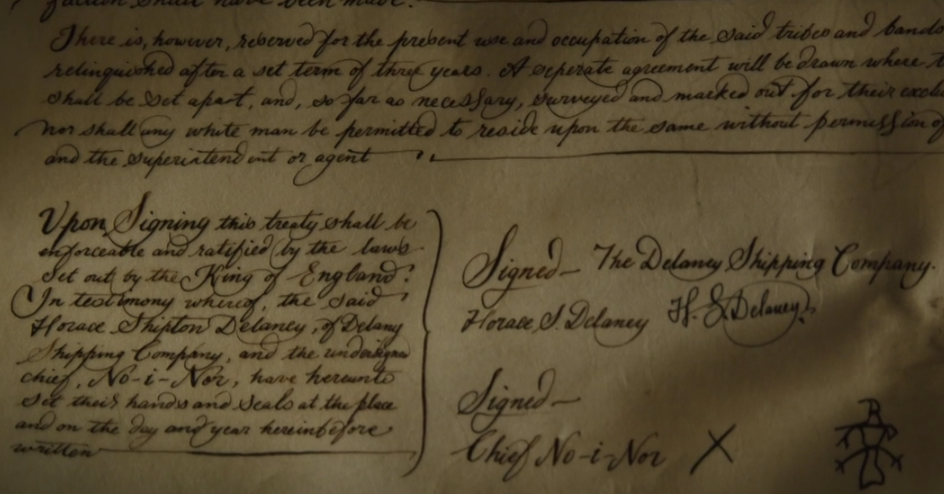 faction shall have been made.
There is, however, reserved for the present use and occupation of the said tribes and bands
relinquished after a set term of three years. A seperate agreement will be drawn where
shall be set apart, and, so far as necessary, surveyed and marked out for their
nor shall any white man be permitted to reside upon the same without permission of
and the superintendent or agent
Upon Signing this treaty shall be
enforceable and ratified by the laws
set out by the King of England:
In testimony whereof, the said
Horace Shipton Delaney, of Delany
Shipping Company, and the undersigned
chief, No-i-Nor, have hereunto
set their hands and seals at the place
and on the day and year hereinbefore
written
Signed— The Delaney Shipping Company.
Horace S. Delaney H. S Delaney
Signed—
Chief No-i-Nor X